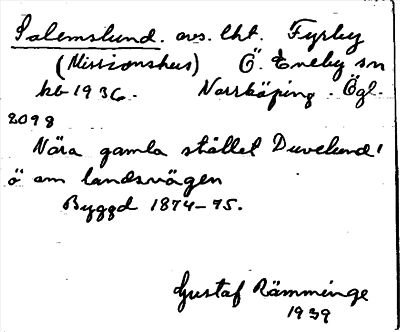 Salemslund. avs. lht. Fyrby
(Missionshus) Ö. Eneby sn
kb 1936. Norrköping. Ögl.
2098
Nära gamla stället Duvelund!
ö om landsvägen
Byggd 1874-75.
Gustaf Rämminge
1939